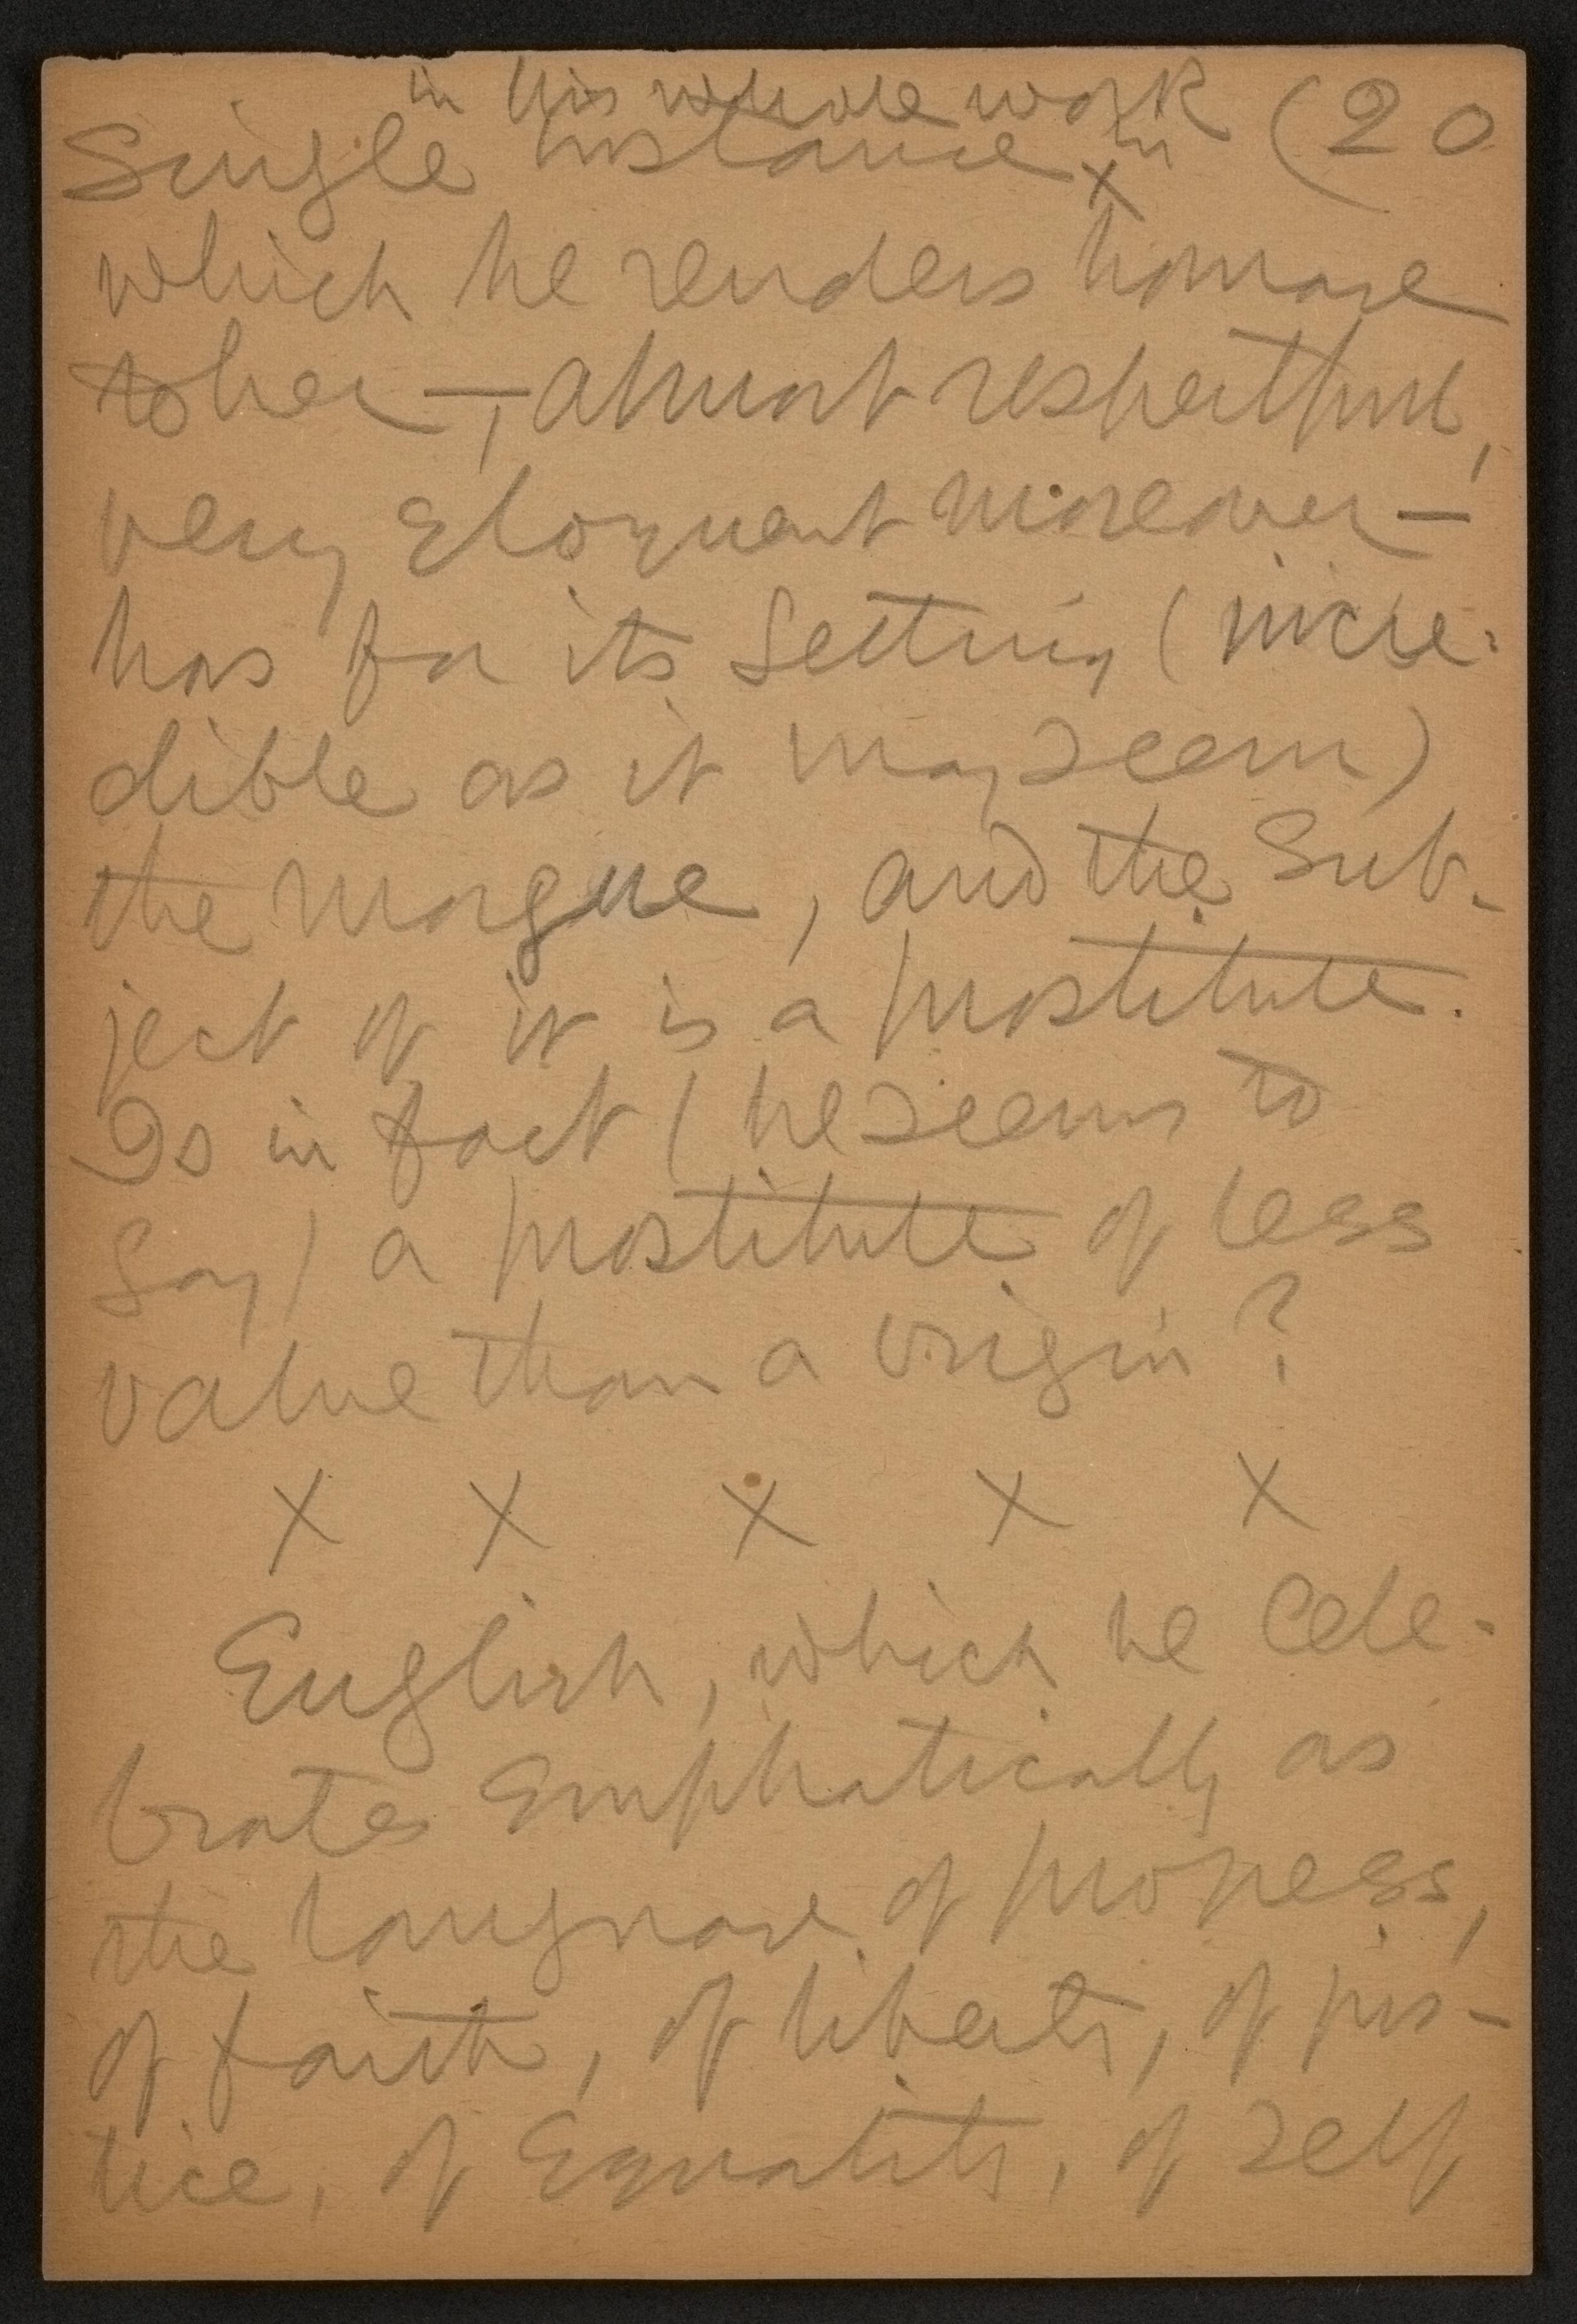 in his whole work (20
Single instance x in
which he renders homage
to her —, almost respectful,
very eloquent moreover —
has for its setting (incre-
dible as it may seem)
the morgue, and the sub-
ject of it is a prostitute.
Is in fact (he seems to
say) a prostitute of less
value than a virgin?
x x x x x
English, which he cele-
brates emphatically as
the language of progress,
of faith, of liberty, of jus-
tice, of equality, of self